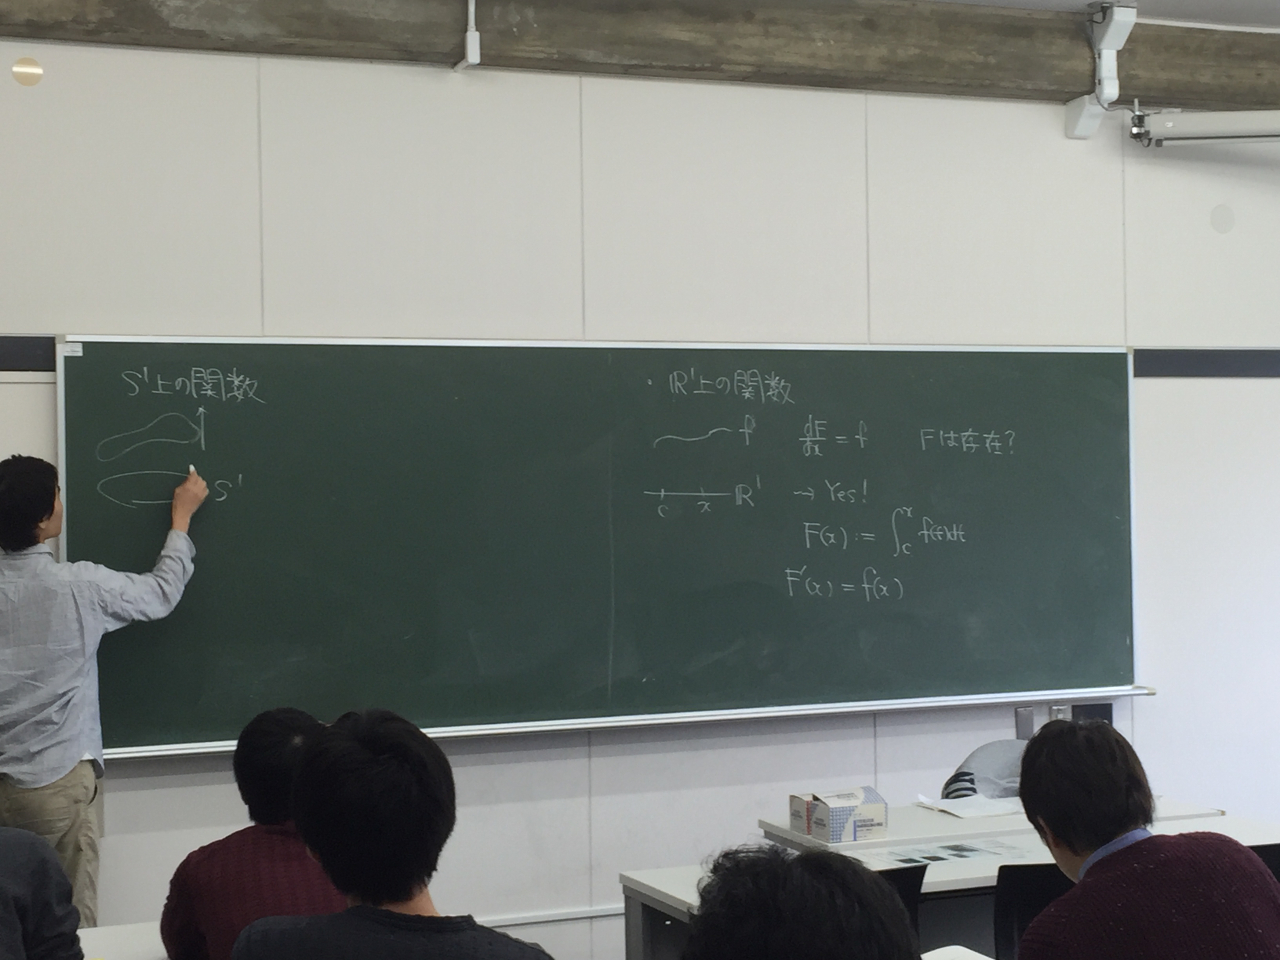 S¹上の関数
S¹
・ℝ¹上の関数
f dF/dx = f Fは存在?
c x ℝ¹ → Yes!
F(x) := ∫_c^x f(t)dt
F'(x) = f(x)